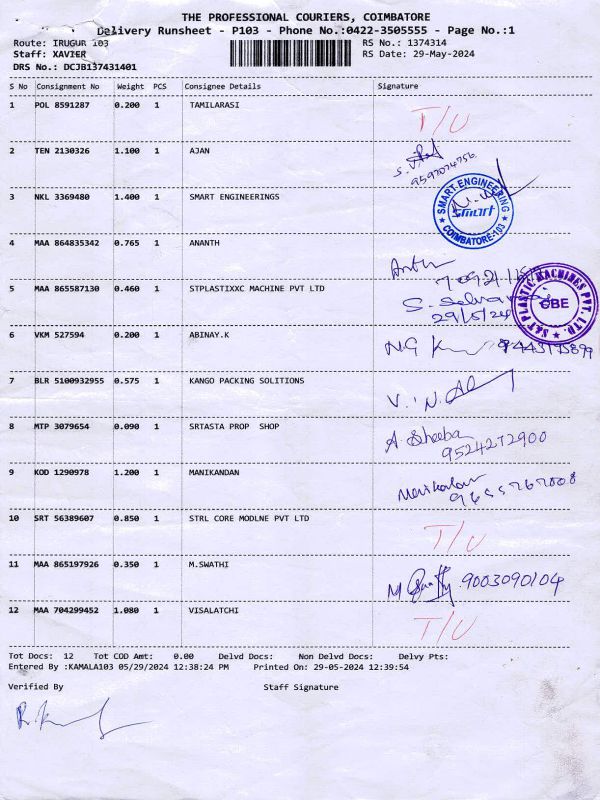 THE PROFESSIONAL COURIERS, COIMBATORE
Delivery Runsheet - P103 - Phone No.:0422-3505555 - Page No.:1
Route: IRUGUR 103 RS No.: 1374314
Staff: XAVIER RS Date: 29-May-2024
DRS No.: DCJB137431401
S No Consignment No Weight PCS Consignee Details Signature
1 POL 8591287 0.200 1 TAMILARASI T/U
2 TEN 2130326 1.100 1 AJAN
9597074756
3 NKL 3369480 1.400 1 SMART ENGINEERINGS
SMART ENGINEERING
smart
COIMBATORE-103
4 MAA 864835342 0.765 1 ANANTH
5 MAA 865587130 0.460 1 STPLASTIXXC MACHINE PVT LTD
S. Selva
29/5/24
S&T PLASTIC MACHINES PVT. LTD.
CBE
6 VKM 527594 0.200 1 ABINAY.K
7 BLR 5100932955 0.575 1 KANGO PACKING SOLITIONS
8 MTP 3079654 0.090 1 SRTASTA PROP SHOP A. Sheeba
9524272900
9 KOD 1290978 1.200 1 MANIKANDAN Manikandan
10 SRT 56389607 0.850 1 STRL CORE MODLNE PVT LTD T/U
11 MAA 865197926 0.350 1 M.SWATHI 9003090104
12 MAA 704299452 1.080 1 VISALATCHI T/U
Tot Docs: 12 Tot COD Amt: 0.00 Delvd Docs: Non Delvd Docs: Delvy Pts:
Entered By :KAMALA103 05/29/2024 12:38:24 PM Printed On: 29-05-2024 12:39:54
Verified By Staff Signature